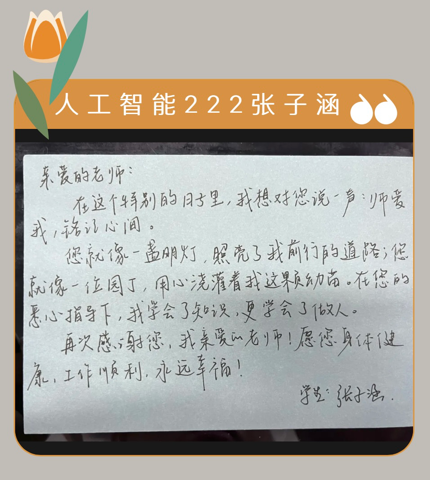 人工智能222张子涵
亲爱的老师：
在这个特别的日子里，我想对您说一声：师爱
我，铭记心间。
您就像一盏明灯，照亮了我前行的道路；您
就像一位园丁，用心浇灌着我这棵幼苗。在您的
悉心指导下，我学会了知识，更学会了做人。
再次感谢您，我亲爱的老师！愿您身体健
康，工作顺利，永远幸福！
学生：张子涵.